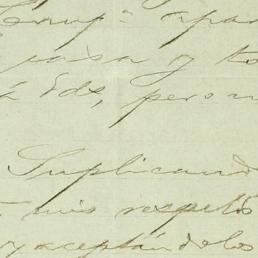 Comp.ª Espa
pasa y to
á Vds, pero n
Suplicand
mis respeto
y aceptándolos